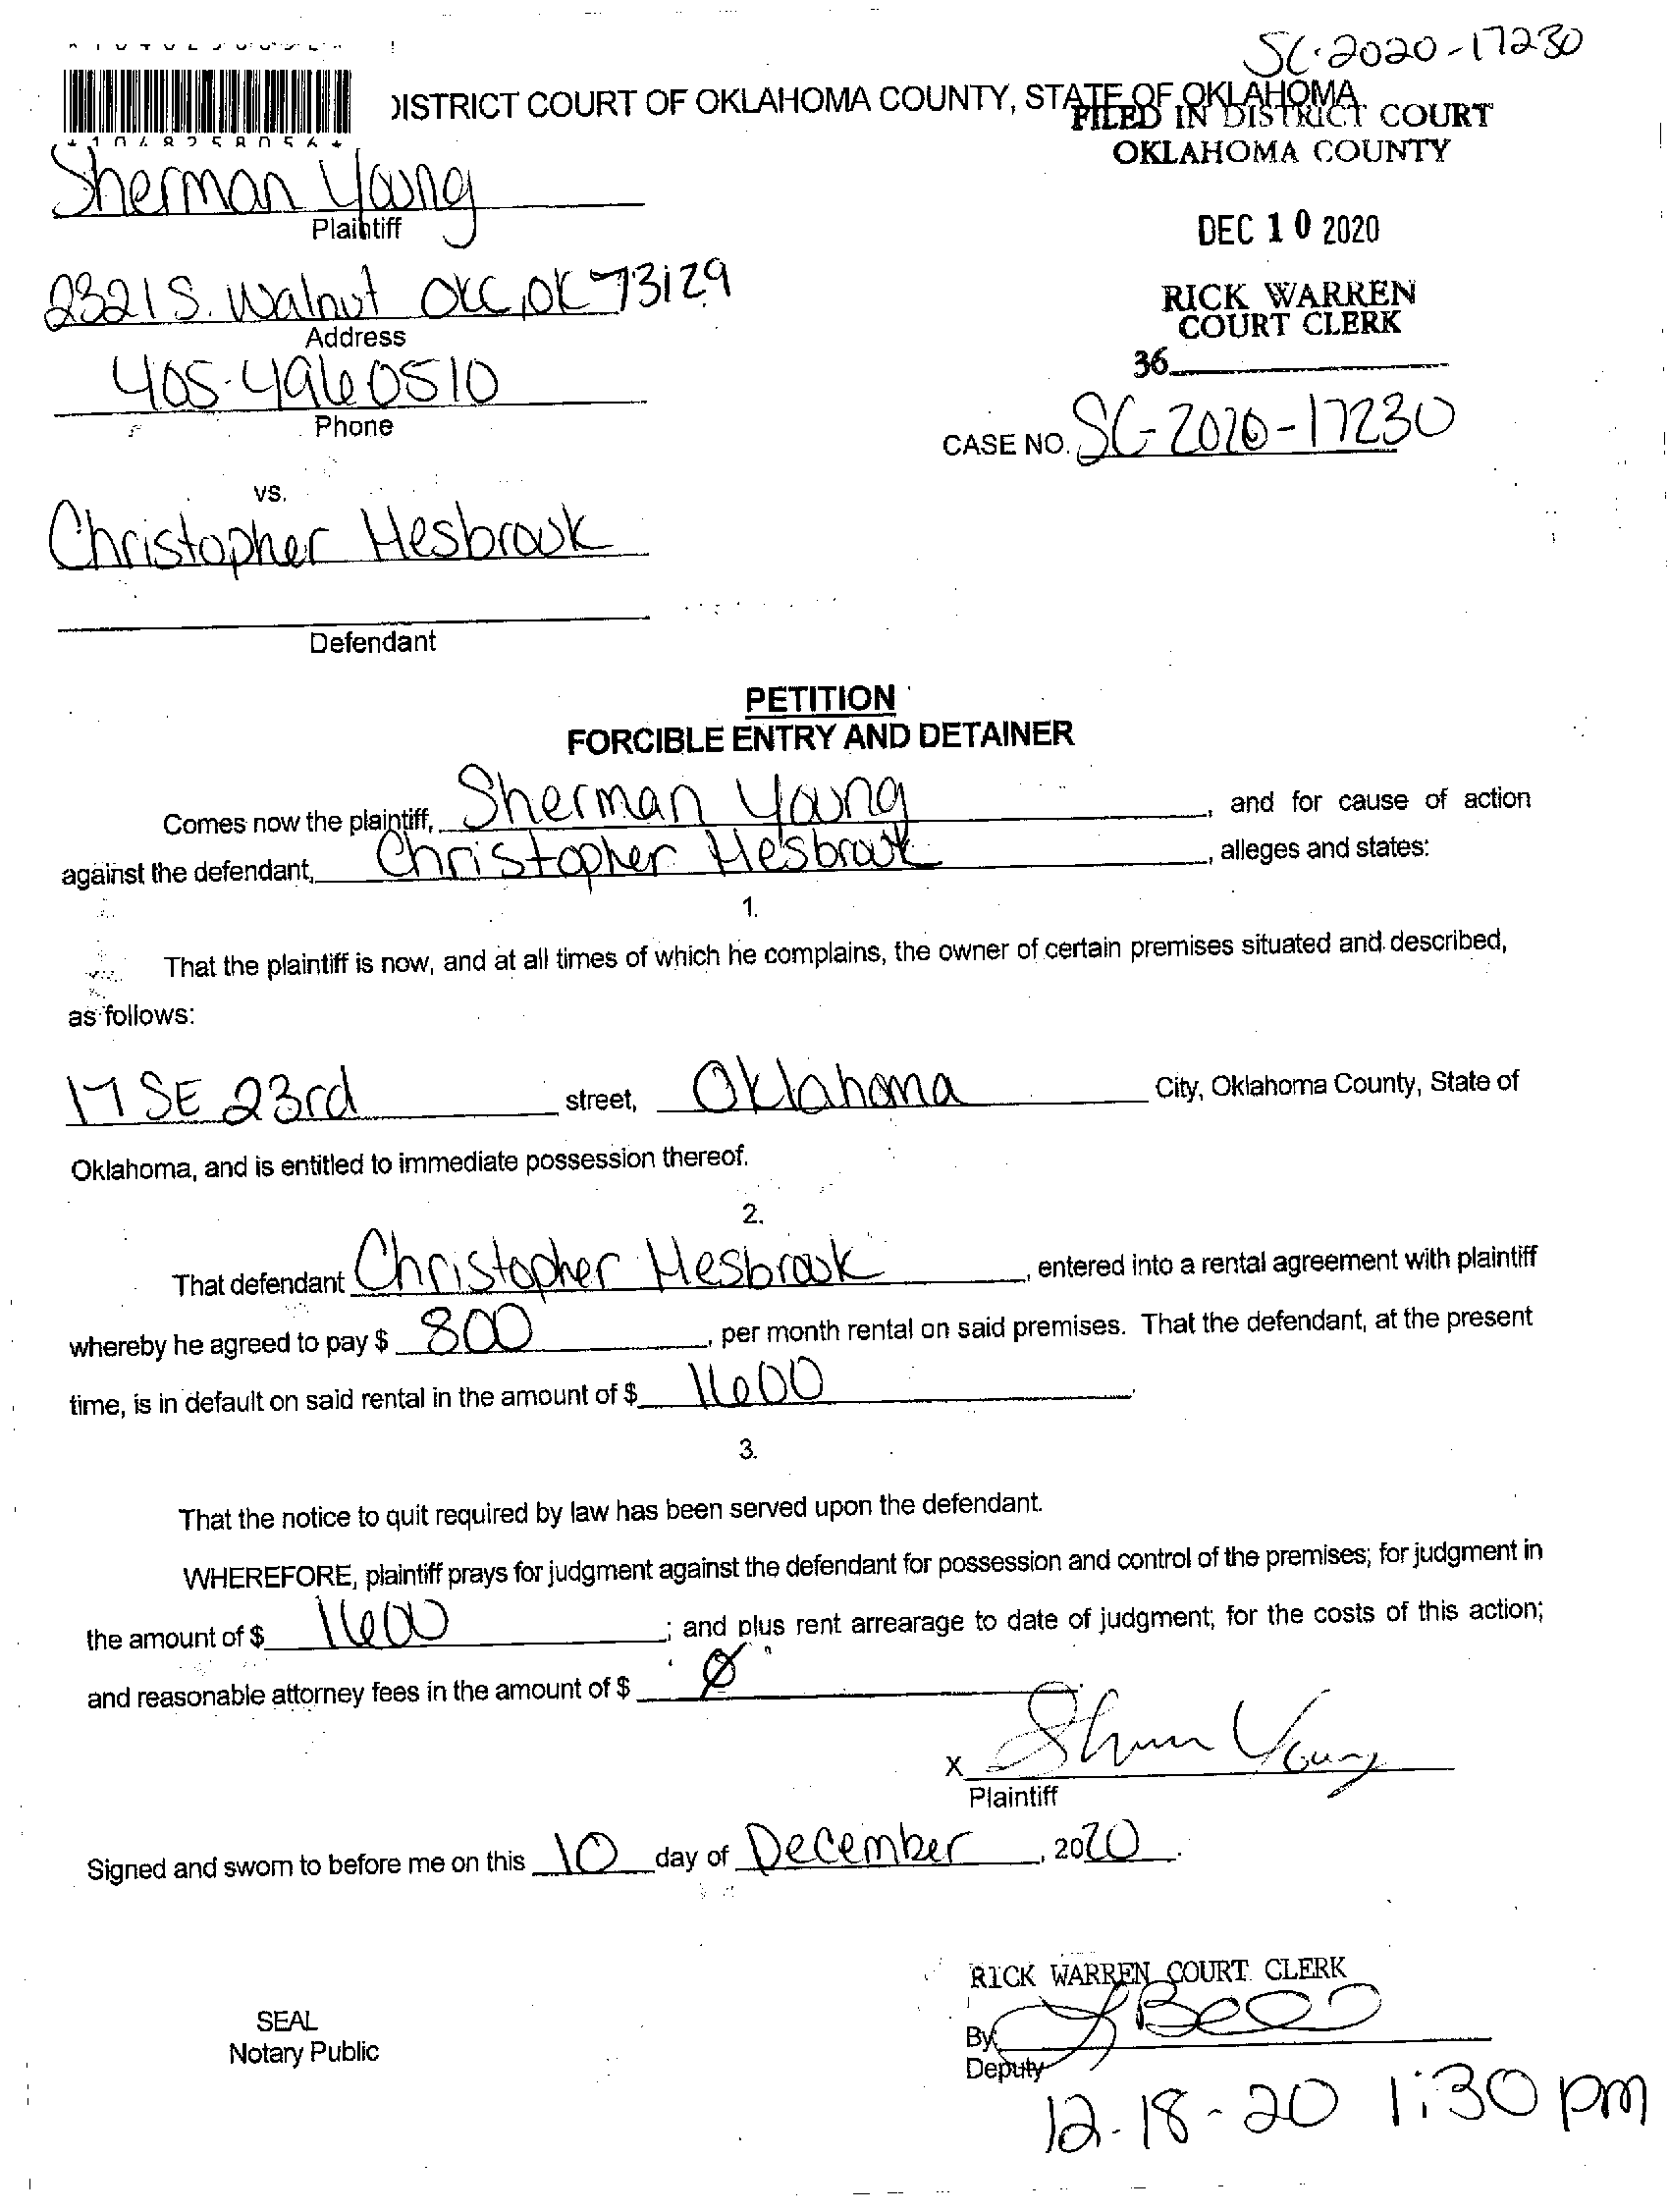 SC-2020-17230
DISTRICT COURT OF OKLAHOMA COUNTY, STATE OF OKLAHOMA
FILED IN DISTRICT COURT
OKLAHOMA COUNTY
*1048258056*
Sherman Young
Plaintiff
DEC 10 2020
2321 S. Walnut OKC, OK 73129
Address
RICK WARREN
COURT CLERK
36
405-496 0510
Phone
CASE NO. SC-2020-17230
vs.
Christopher Hesbrook
Defendant
PETITION
FORCIBLE ENTRY AND DETAINER
Comes now the plaintiff, Sherman Young, and for cause of action
against the defendant, Christopher Hesbrook, alleges and states:
1.
That the plaintiff is now, and at all times of which he complains, the owner of certain premises situated and described,
as follows:
17 SE 23rd street, Oklahoma City, Oklahoma County, State of
Oklahoma, and is entitled to immediate possession thereof.
2.
That defendant Christopher Hesbrook, entered into a rental agreement with plaintiff
whereby he agreed to pay $ 800, per month rental on said premises. That the defendant, at the present
time, is in default on said rental in the amount of $ 1600.
3.
That the notice to quit required by law has been served upon the defendant.
WHEREFORE, plaintiff prays for judgment against the defendant for possession and control of the premises; for judgment in
the amount of $ 1600; and plus rent arrearage to date of judgment; for the costs of this action;
and reasonable attorney fees in the amount of $ Ø.
X Sherman Young
Plaintiff
Signed and sworn to before me on this 10 day of December, 2020.
RICK WARREN COURT CLERK
SEAL
Notary Public
By
Deputy
12-18-20 1:30 pm